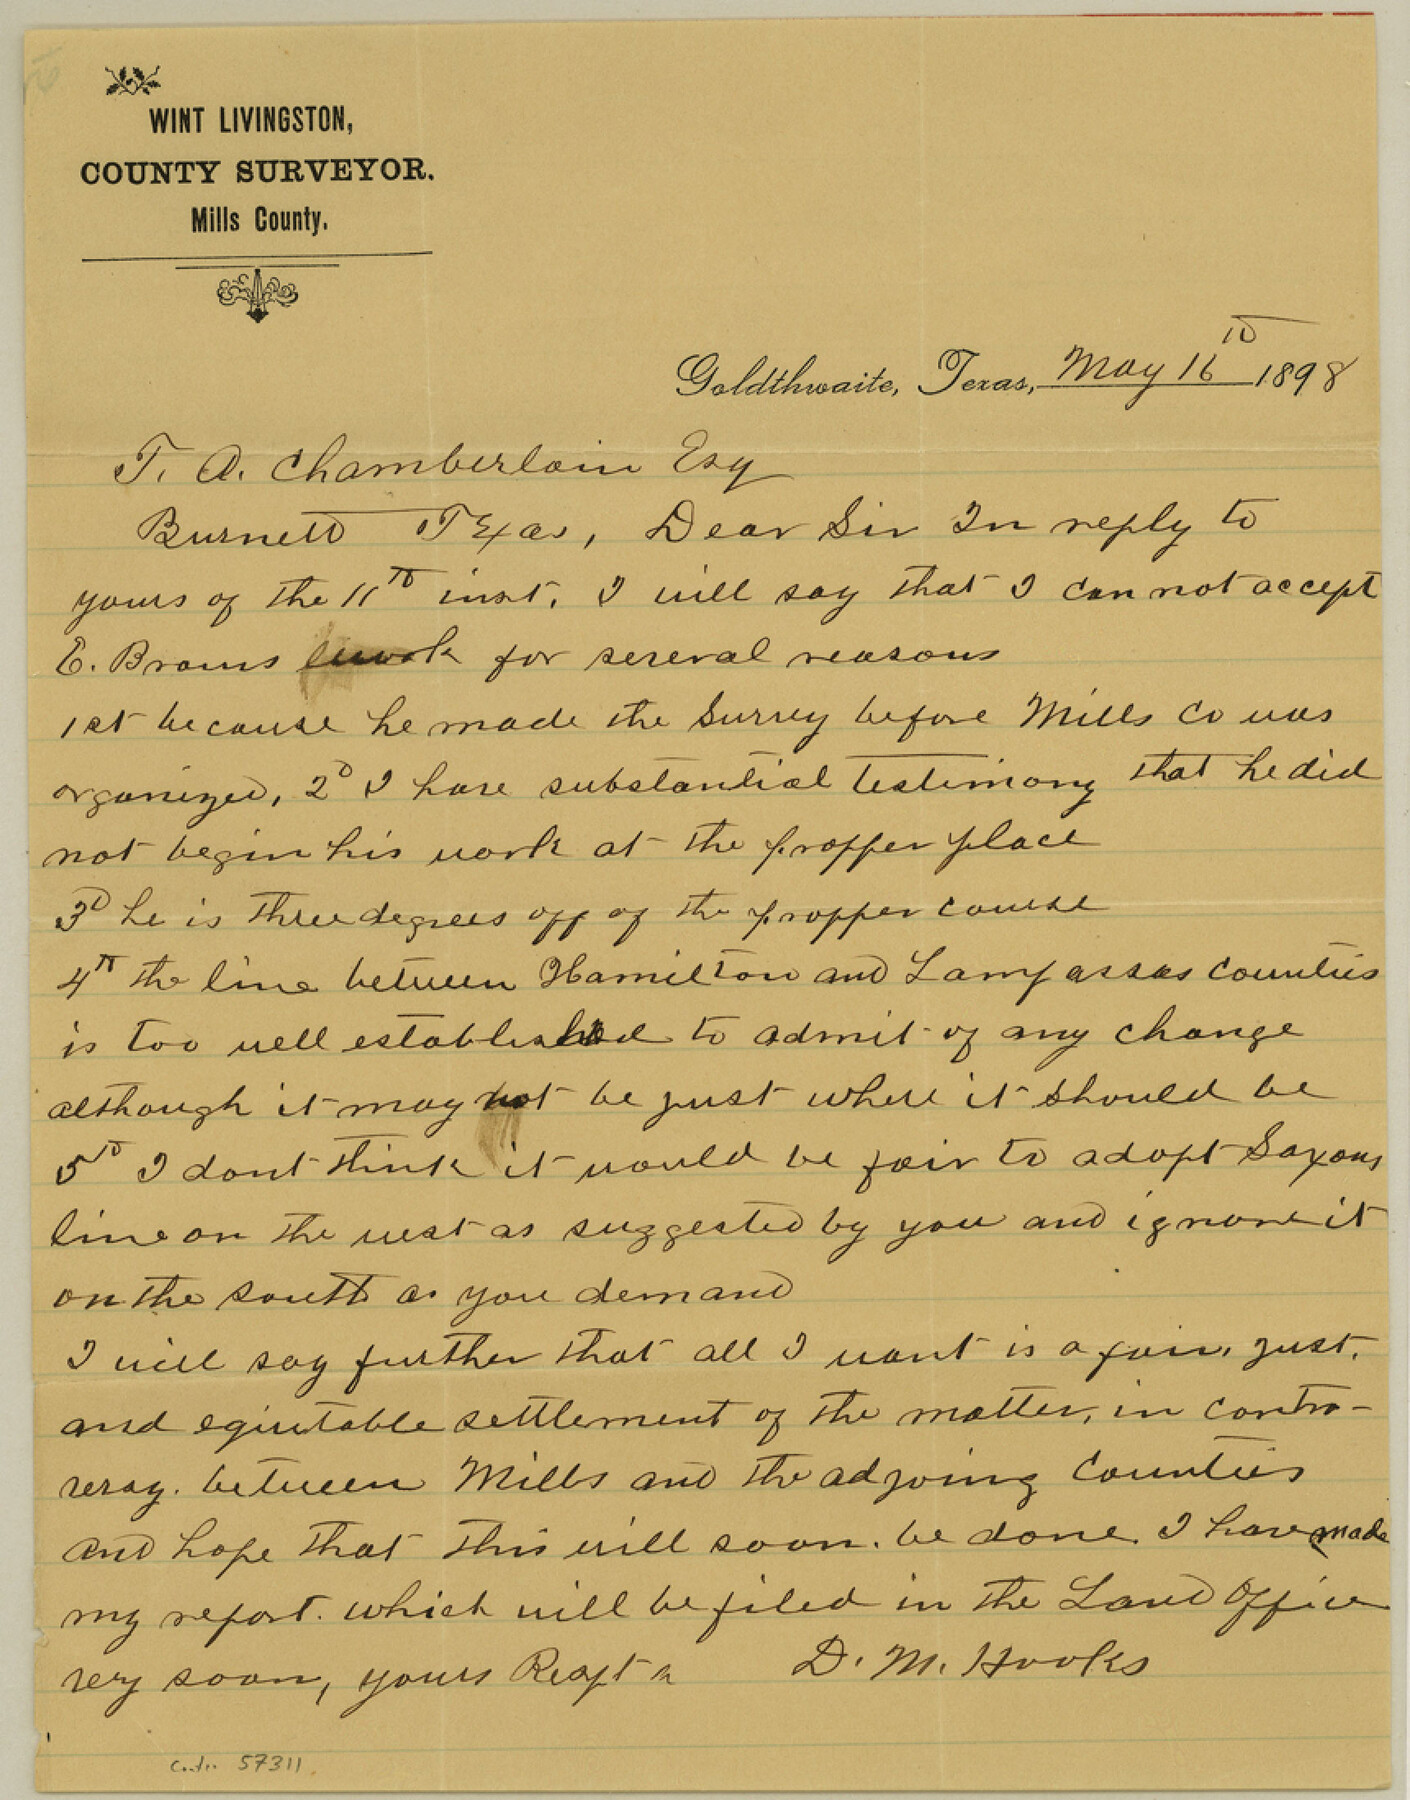 WINT LIVINGSTON,
COUNTY SURVEYOR.
Mills County.
Goldthwaite, Texas, May 16th 1898
T. A. Chamberlain Esq
Burnett Texas, Dear Sir In reply to
yours of the 11th inst. I will say that I can not accept
E. Browns work for several reasons
1st because he made the Survey before Mills Co was
organized, 2d I have substantial testimony that he did
not begin his work at the propper place
3d he is three degrees off of the propper course
4th the line between Hamilton and Lampassas Counties
is too well established to admit of any change
although it may not be just where it should be
5th I dont think it would be fair to adopt Saxons
line on the west as suggested by you and ignore it
on the south as you demand
I will say further that all I want is a fair, just,
and equitable settlement of the matter, in contro-
versy. between Mills and the adjoing Counties
and hope that this will soon. be done. I have made
my report. which will be filed in the Land Office
very soon, yours Respt
D. M. Hooks
57311